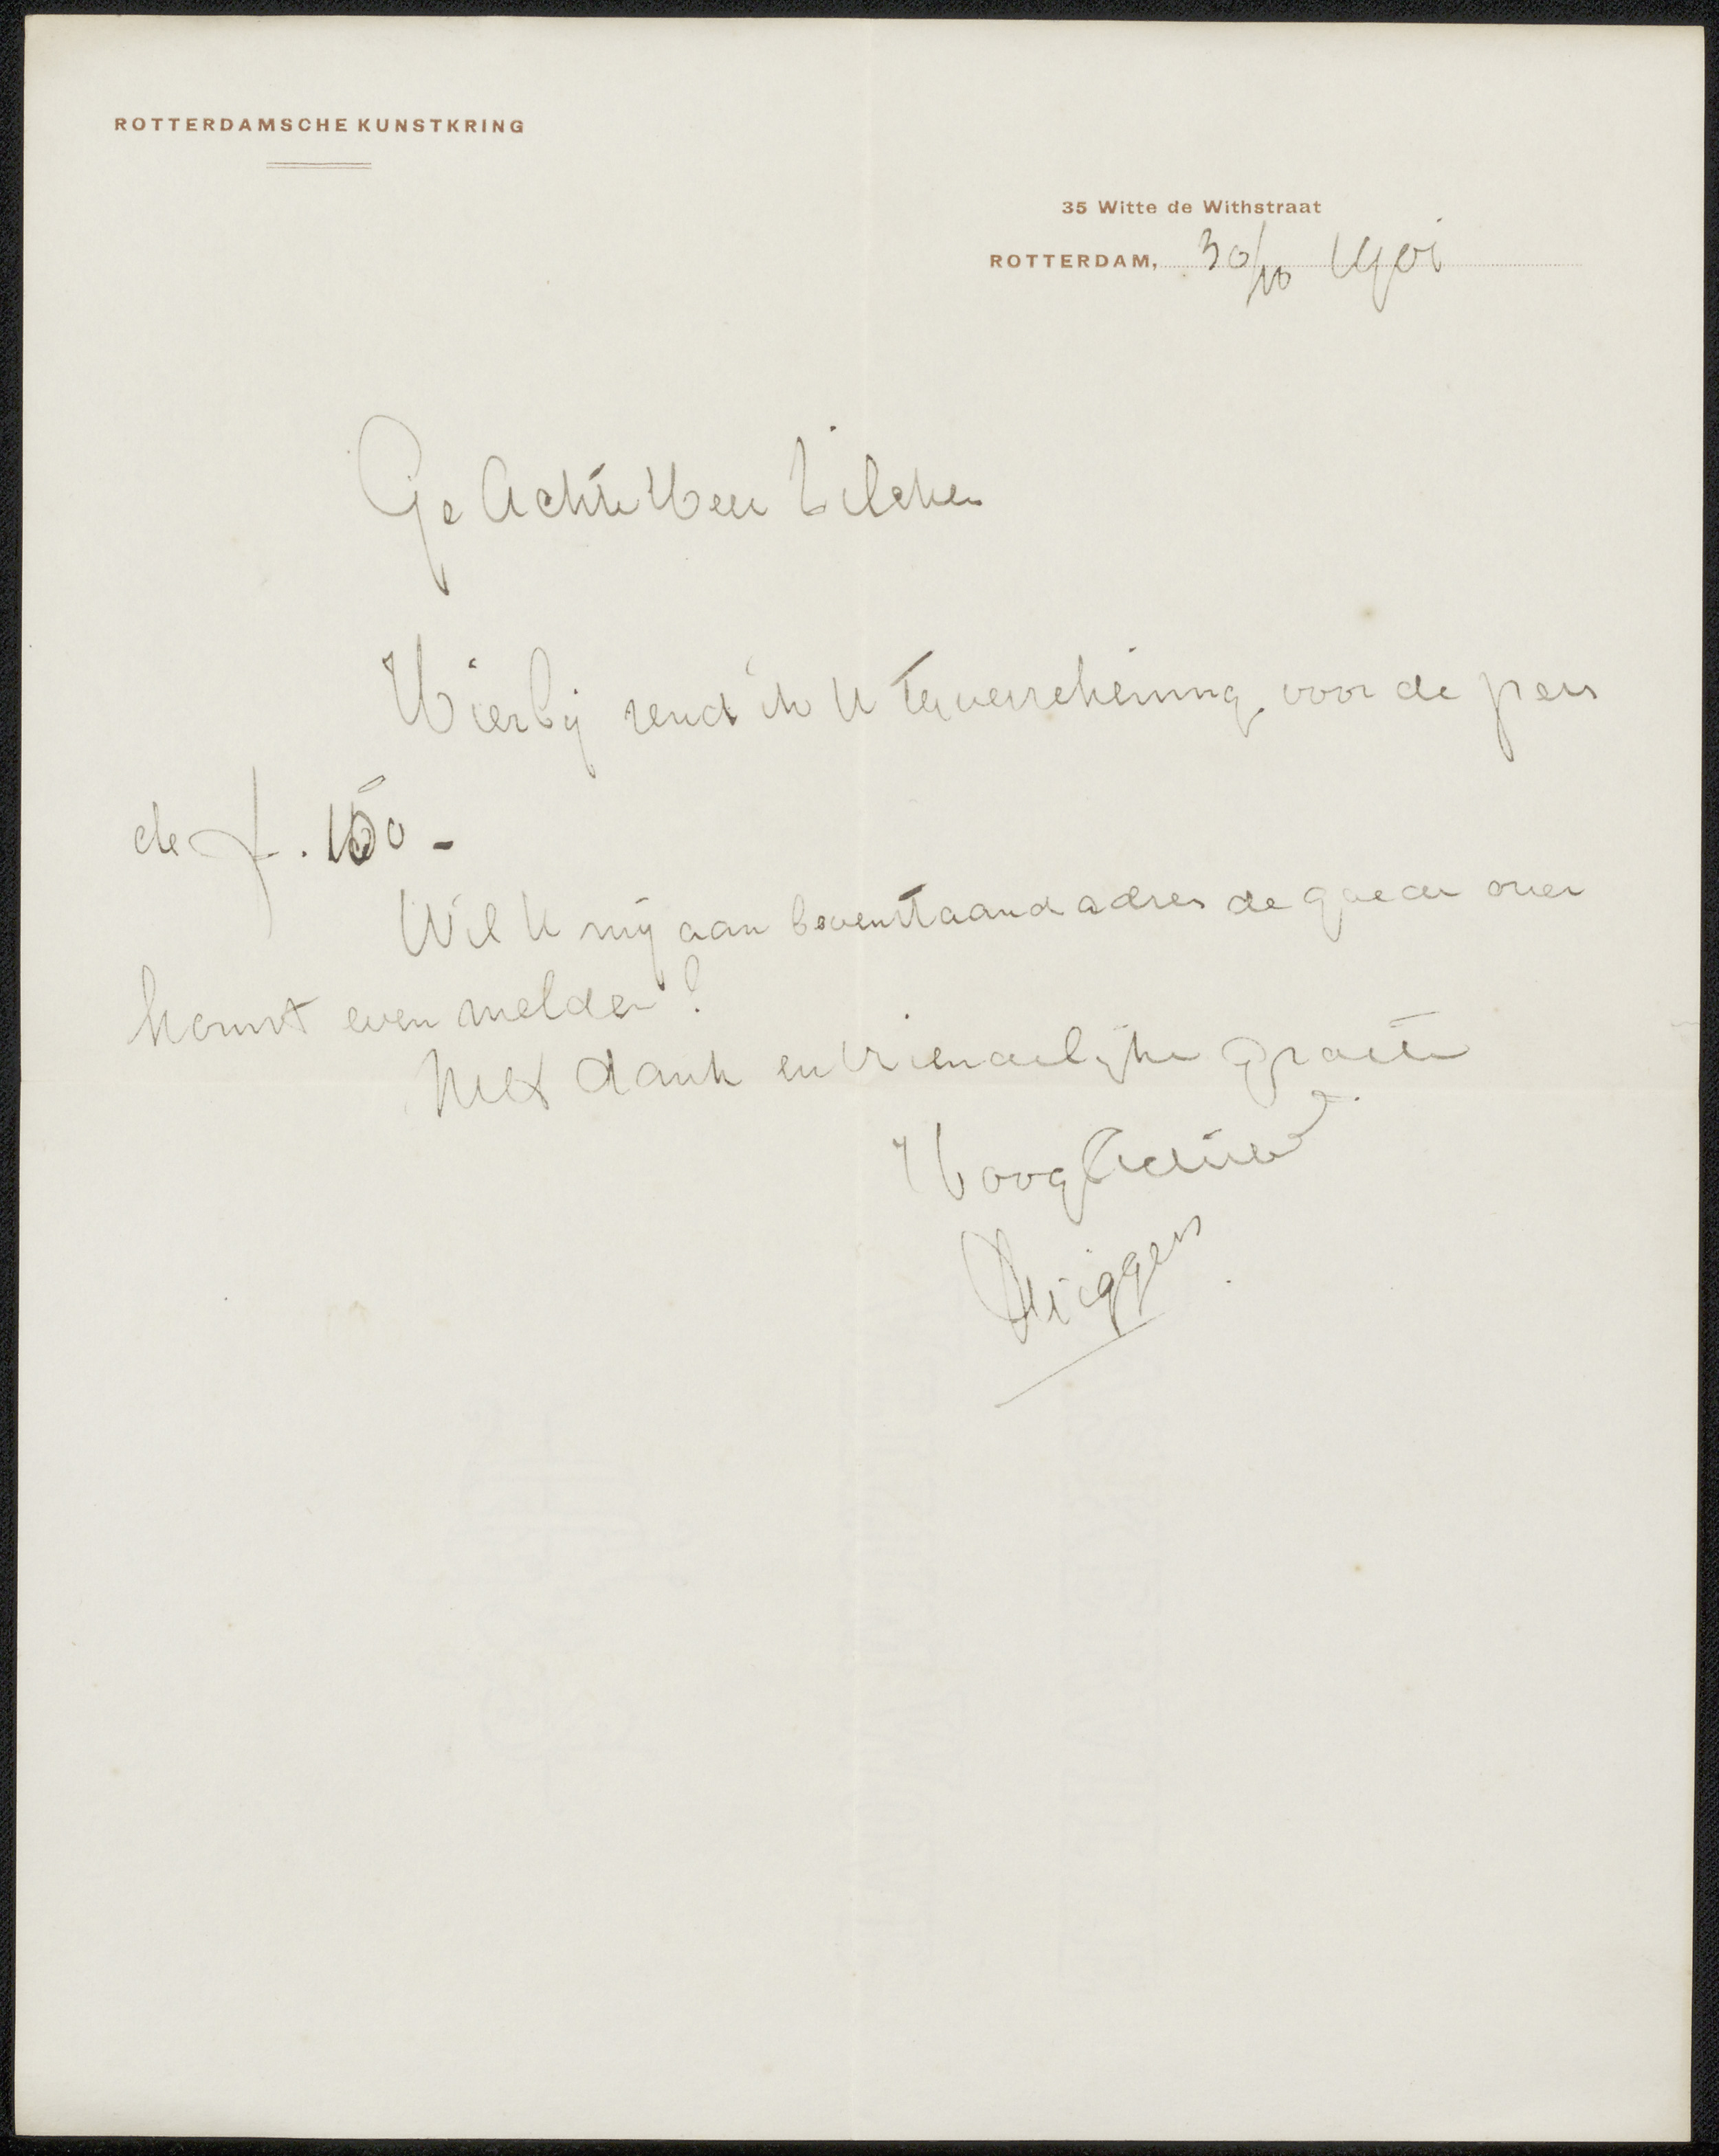 ROTTERDAMSCHE KUNSTKRING
35 Witte de Withstraat
ROTTERDAM, 30/10 1901
GeAchte Heer Zilcken
Hierbij zend ik U ter verrekening voor de pers
de f. 150 -
Wil U mij aan bovenstaand adres de goede over
komst even melden?
Met dank en vriendelijke groeten
Hoogachtend